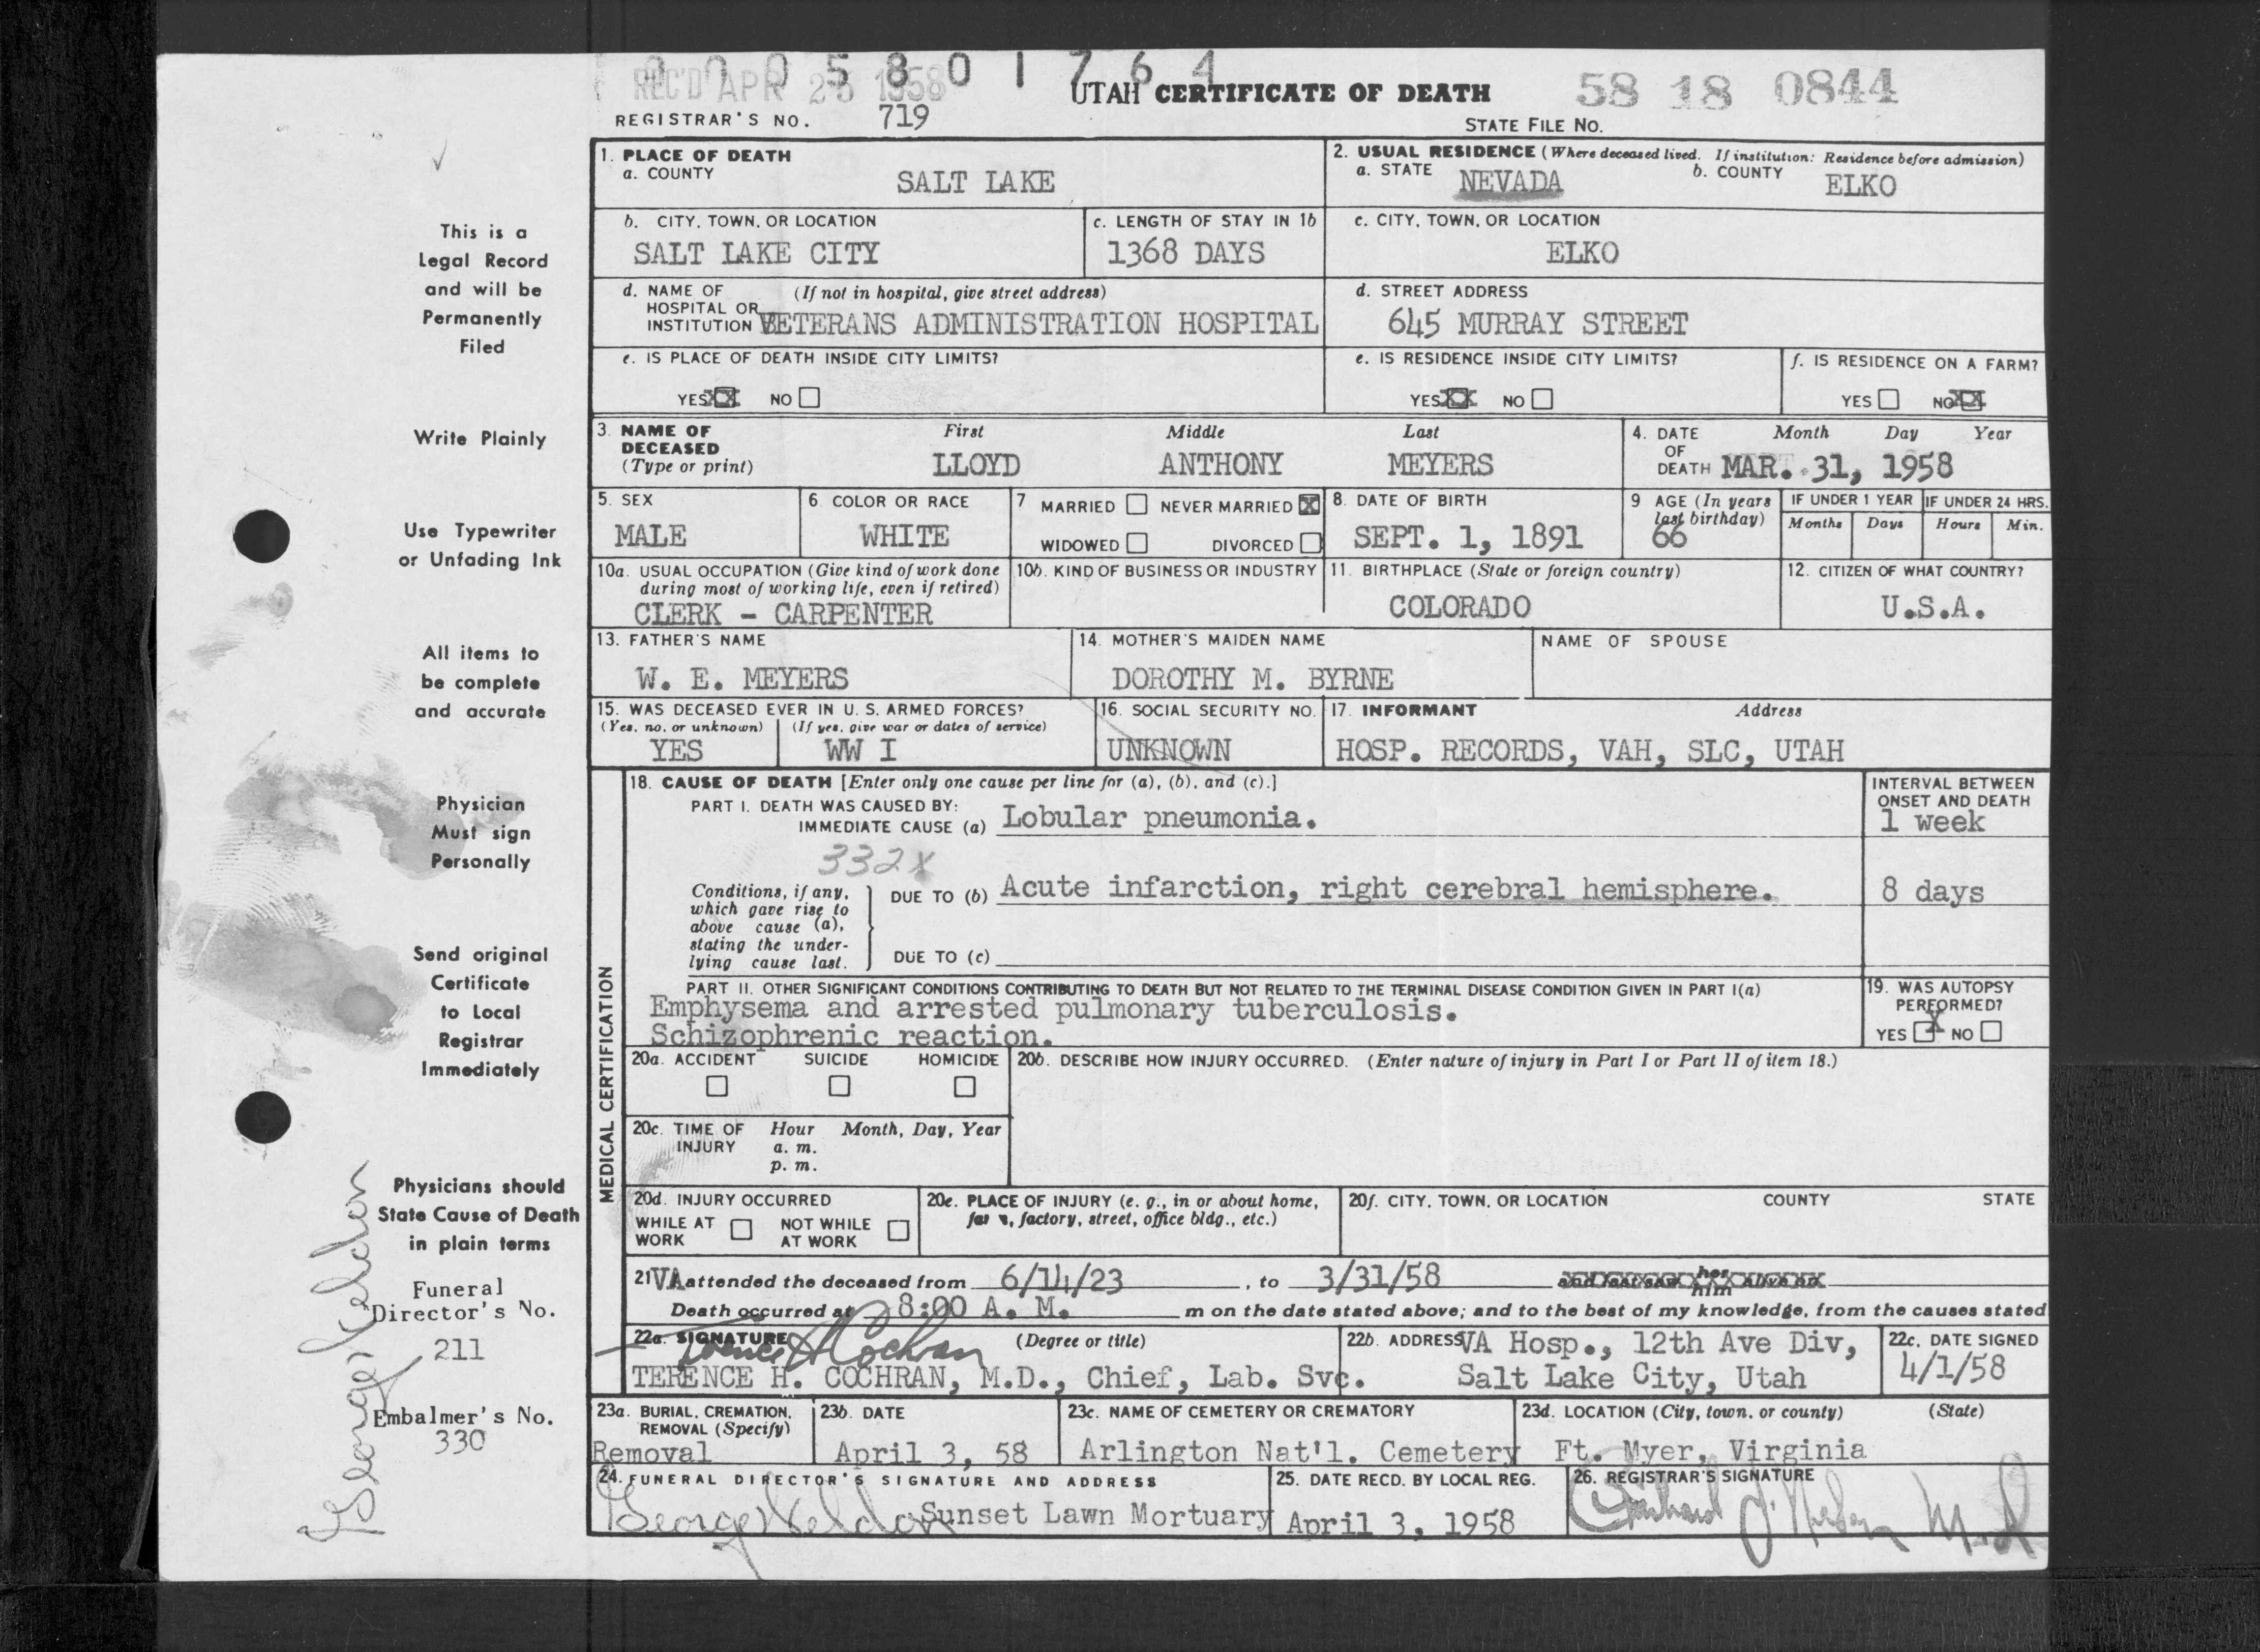 0 0 0 5 8 0 1 7 6 4
REC'D APR 28 1958
UTAH CERTIFICATE OF DEATH
58 18 0844
REGISTRAR'S NO. 719
STATE FILE NO.
This is a
Legal Record
and will be
Permanently
Filed
Write Plainly
Use Typewriter
or Unfading Ink
All items to
be complete
and accurate
Physician
Must sign
Personally
Send original
Certificate
to Local
Registrar
Immediately
Physicians should
State Cause of Death
in plain terms
Funeral
Director's No.
211
Embalmer's No.
330
George Weldon
1. PLACE OF DEATH
a. COUNTY SALT LAKE
2. USUAL RESIDENCE (Where deceased lived. If institution: Residence before admission)
a. STATE NEVADA b. COUNTY ELKO
b. CITY, TOWN, OR LOCATION
SALT LAKE CITY
c. LENGTH OF STAY IN 1b
1368 DAYS
c. CITY, TOWN, OR LOCATION
ELKO
d. NAME OF (If not in hospital, give street address)
HOSPITAL OR
INSTITUTION VETERANS ADMINISTRATION HOSPITAL
d. STREET ADDRESS
645 MURRAY STREET
e. IS PLACE OF DEATH INSIDE CITY LIMITS?
YES XX NO
e. IS RESIDENCE INSIDE CITY LIMITS?
YES XX NO
f. IS RESIDENCE ON A FARM?
YES NO XX
3. NAME OF First Middle Last
DECEASED
(Type or print) LLOYD ANTHONY MEYERS
4. DATE Month Day Year
OF
DEATH MAR. 31, 1958
5. SEX
MALE
6. COLOR OR RACE
WHITE
7 MARRIED NEVER MARRIED X
WIDOWED DIVORCED
8. DATE OF BIRTH
SEPT. 1, 1891
9 AGE (In years
last birthday)
66
IF UNDER 1 YEAR IF UNDER 24 HRS.
Months Days Hours Min.
10a. USUAL OCCUPATION (Give kind of work done
during most of working life, even if retired)
CLERK - CARPENTER
10b. KIND OF BUSINESS OR INDUSTRY
11. BIRTHPLACE (State or foreign country)
COLORADO
12. CITIZEN OF WHAT COUNTRY?
U.S.A.
13. FATHER'S NAME
W. E. MEYERS
14. MOTHER'S MAIDEN NAME
DOROTHY M. BYRNE
NAME OF SPOUSE
15. WAS DECEASED EVER IN U. S. ARMED FORCES?
(Yes, no, or unknown) (If yes, give war or dates of service)
YES WW I
16. SOCIAL SECURITY NO.
UNKNOWN
17. INFORMANT Address
HOSP. RECORDS, VAH, SLC, UTAH
MEDICAL CERTIFICATION
18. CAUSE OF DEATH [Enter only one cause per line for (a), (b), and (c).]
PART I. DEATH WAS CAUSED BY:
IMMEDIATE CAUSE (a) Lobular pneumonia.
INTERVAL BETWEEN
ONSET AND DEATH
1 week
332X
Conditions, if any,
which gave rise to
above cause (a),
stating the under-
lying cause last.
DUE TO (b) Acute infarction, right cerebral hemisphere.
8 days
DUE TO (c)
PART II. OTHER SIGNIFICANT CONDITIONS CONTRIBUTING TO DEATH BUT NOT RELATED TO THE TERMINAL DISEASE CONDITION GIVEN IN PART I(a)
Emphysema and arrested pulmonary tuberculosis.
Schizophrenic reaction.
19. WAS AUTOPSY
PERFORMED?
YES X NO
20a. ACCIDENT SUICIDE HOMICIDE
20b. DESCRIBE HOW INJURY OCCURRED. (Enter nature of injury in Part I or Part II of item 18.)
20c. TIME OF Hour Month, Day, Year
INJURY a. m.
p. m.
20d. INJURY OCCURRED
WHILE AT NOT WHILE
WORK AT WORK
20e. PLACE OF INJURY (e. g., in or about home,
farm, factory, street, office bldg., etc.)
20f. CITY, TOWN, OR LOCATION COUNTY STATE
21 VA attended the deceased from 6/14/23, to 3/31/58 and last saw her him alive on
Death occurred at 8:00 A. M. m on the date stated above; and to the best of my knowledge, from the causes stated
22a. SIGNATURE (Degree or title)
Terence H Cochran
TERENCE H. COCHRAN, M.D., Chief, Lab. Svc.
22b. ADDRESS VA Hosp., 12th Ave Div,
Salt Lake City, Utah
22c. DATE SIGNED
4/1/58
23a. BURIAL, CREMATION,
REMOVAL (Specify)
Removal
23b. DATE
April 3, 58
23c. NAME OF CEMETERY OR CREMATORY
Arlington Nat'l. Cemetery
23d. LOCATION (City, town, or county) (State)
Ft. Myer, Virginia
24. FUNERAL DIRECTOR'S SIGNATURE AND ADDRESS
George Weldon Sunset Lawn Mortuary
25. DATE RECD. BY LOCAL REG.
April 3, 1958
26. REGISTRAR'S SIGNATURE